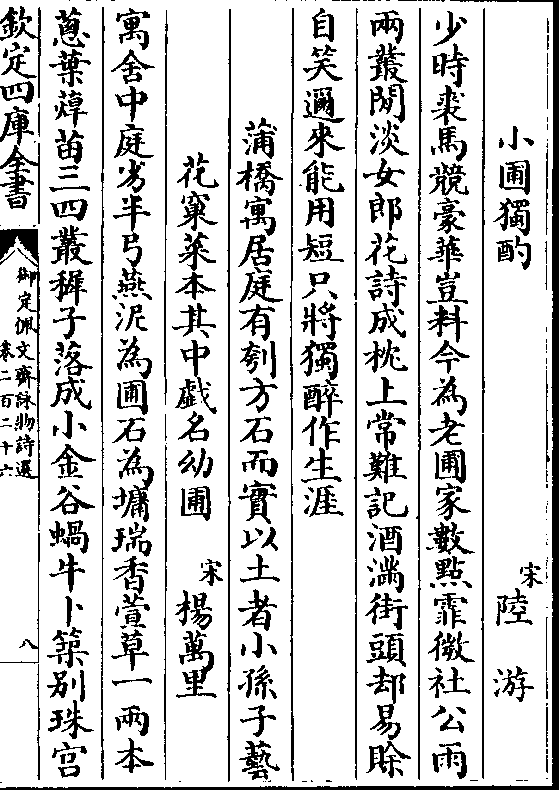 小圃獨酌
宋陸游
少時裘馬競豪華豈料今為老圃家數點霏微社公雨
兩叢閒淡女郎花詩成枕上常難記酒滿街頭却易賒
自笑邇來能用短只將獨醉作生涯
蒲橋寓居庭有刳方石而實以土者小孫子藝
花窠菜本其中戲名幼圃
宋楊萬里
寓舍中庭劣半弓燕泥為圃石為墉瑞香萱草一兩本
蔥葉蓴苗三四叢穉子落成小金谷蝸牛卜築别珠宫
欽定四庫全書
御定佩文齋詠物詩選
卷二百二十六
八